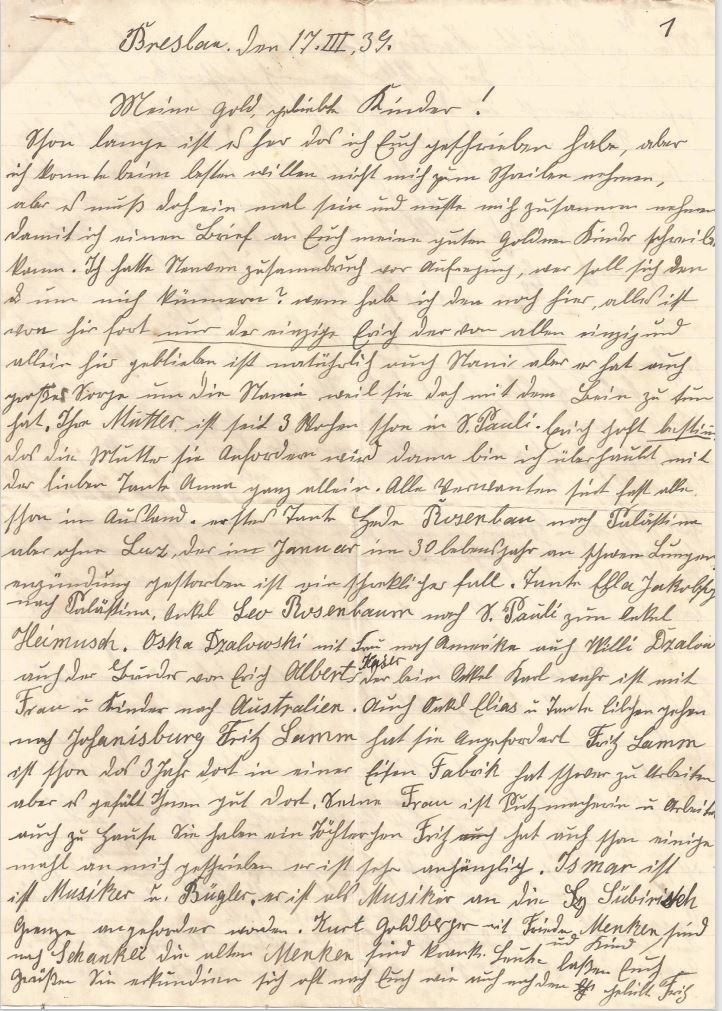 1
Breslau. den 17.III.39.
Meine gold, geliebte Kinder!
Schon lange ist es her das ich Euch geschrieben habe, aber
ich konnte beim besten willen nicht mich zum Schreiben nehmen,
aber es muß doch ein mal sein und mußte mich zusamm nehmen
damit ich einen Brief an Euch meine guten Goldnen Kinder schreib
kann. Ich hatte Nerven zusammbruch vor Aufregung, wer soll sich den
um mich kümmern? wem hab ich den noch hier, alles ist
von hir fort nur der einzige Erich der von allen einzig und
allein hir geblieben ist natürlich auch Stani aber er hat auch
großes Sorge um die weil sie doch mit dem Bein zu tun
hat. Ihre Mutter ist seit 3 Wochen schon in S. Pauli. Erich hoft bestim
das die Mutter sie Anfordern wird dann bin ich überhaubt mit
der lieben Tante Anna ganz allein. Alle Verwanten sind fast alle
schon im Ausland. erstes Tante Hede Rosenbau nach Palästina
aber ohne der im Januar im 30 lebensjahr an schwer Lungen
enzündung gestorben ist ein schreklicher fall. Tante Ella Jakobsy
nach Palästina. Onkel Leo Rosenbaum nach S. Pauli zum Onkel
Heimusch. Oska Dzalowski mit Frau nach Amerika auch Willi Dzalow
auch der Bruder von Erich Albert Kaser der beim Onkel Karl wahr ist mit
Frau u Kinder nach Australien. Auch Onkel Elias u Tante Lilchen gehen
nach Johanisburg Fritz Lamm hat sie Angefordert Fritz Lamm
ist schon das 3 Jahr dort in einer Eisen Fabrik hat schwer zu Arbeiten
aber es gefült Ihnen gut dort. Seine Frau ist Putzmacherin u Arbeite
auch zu Hause Sie haben ein Töchterchen Fritz auch hat auch schon einige
mahl an mich geschrieben er ist sehr anhänglich. Ismar ist
ist Musiker u. Bügler. er ist als Musiker an die Sübirisch
Grenze angefordert worden. Kurt Goldberger mit Frieda Menken und Kind sind
nach Schankei die alten Menken sind krank. Leute laßen Euch
Grüßen Sie erkundien sich oft nach Euch wie auch nach den Fritz